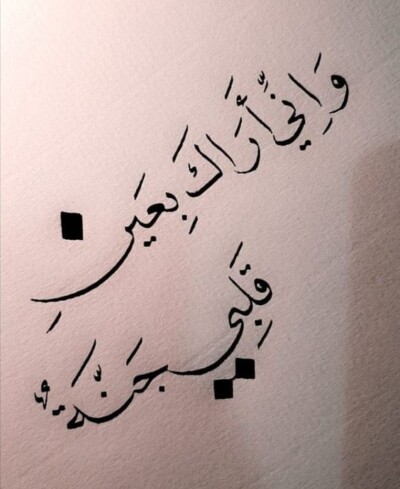 وَاِنِّي أَرَاكَ بِعَينِ
قَلبِي جَنَّةً